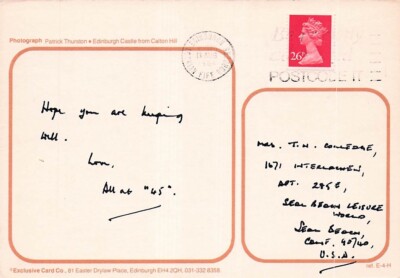 Photograph Patrick Thurston • Edinburgh Castle from Calton Hill
26p
POSTCODE IT
Hope you are keeping
well.
Love,
All at "45".
MRS. T.N. COLLEDGE,
1671 INTERLACHEN,
APT. 295E,
SEAL BEACH LEISURE
WORLD,
SEAL BEACH,
CALIF. 90740,
U.S.A.
© Exclusive Card Co., 81 Easter Drylaw Place, Edinburgh EH4 2QH, 031-332 8358
ref. E-4-H